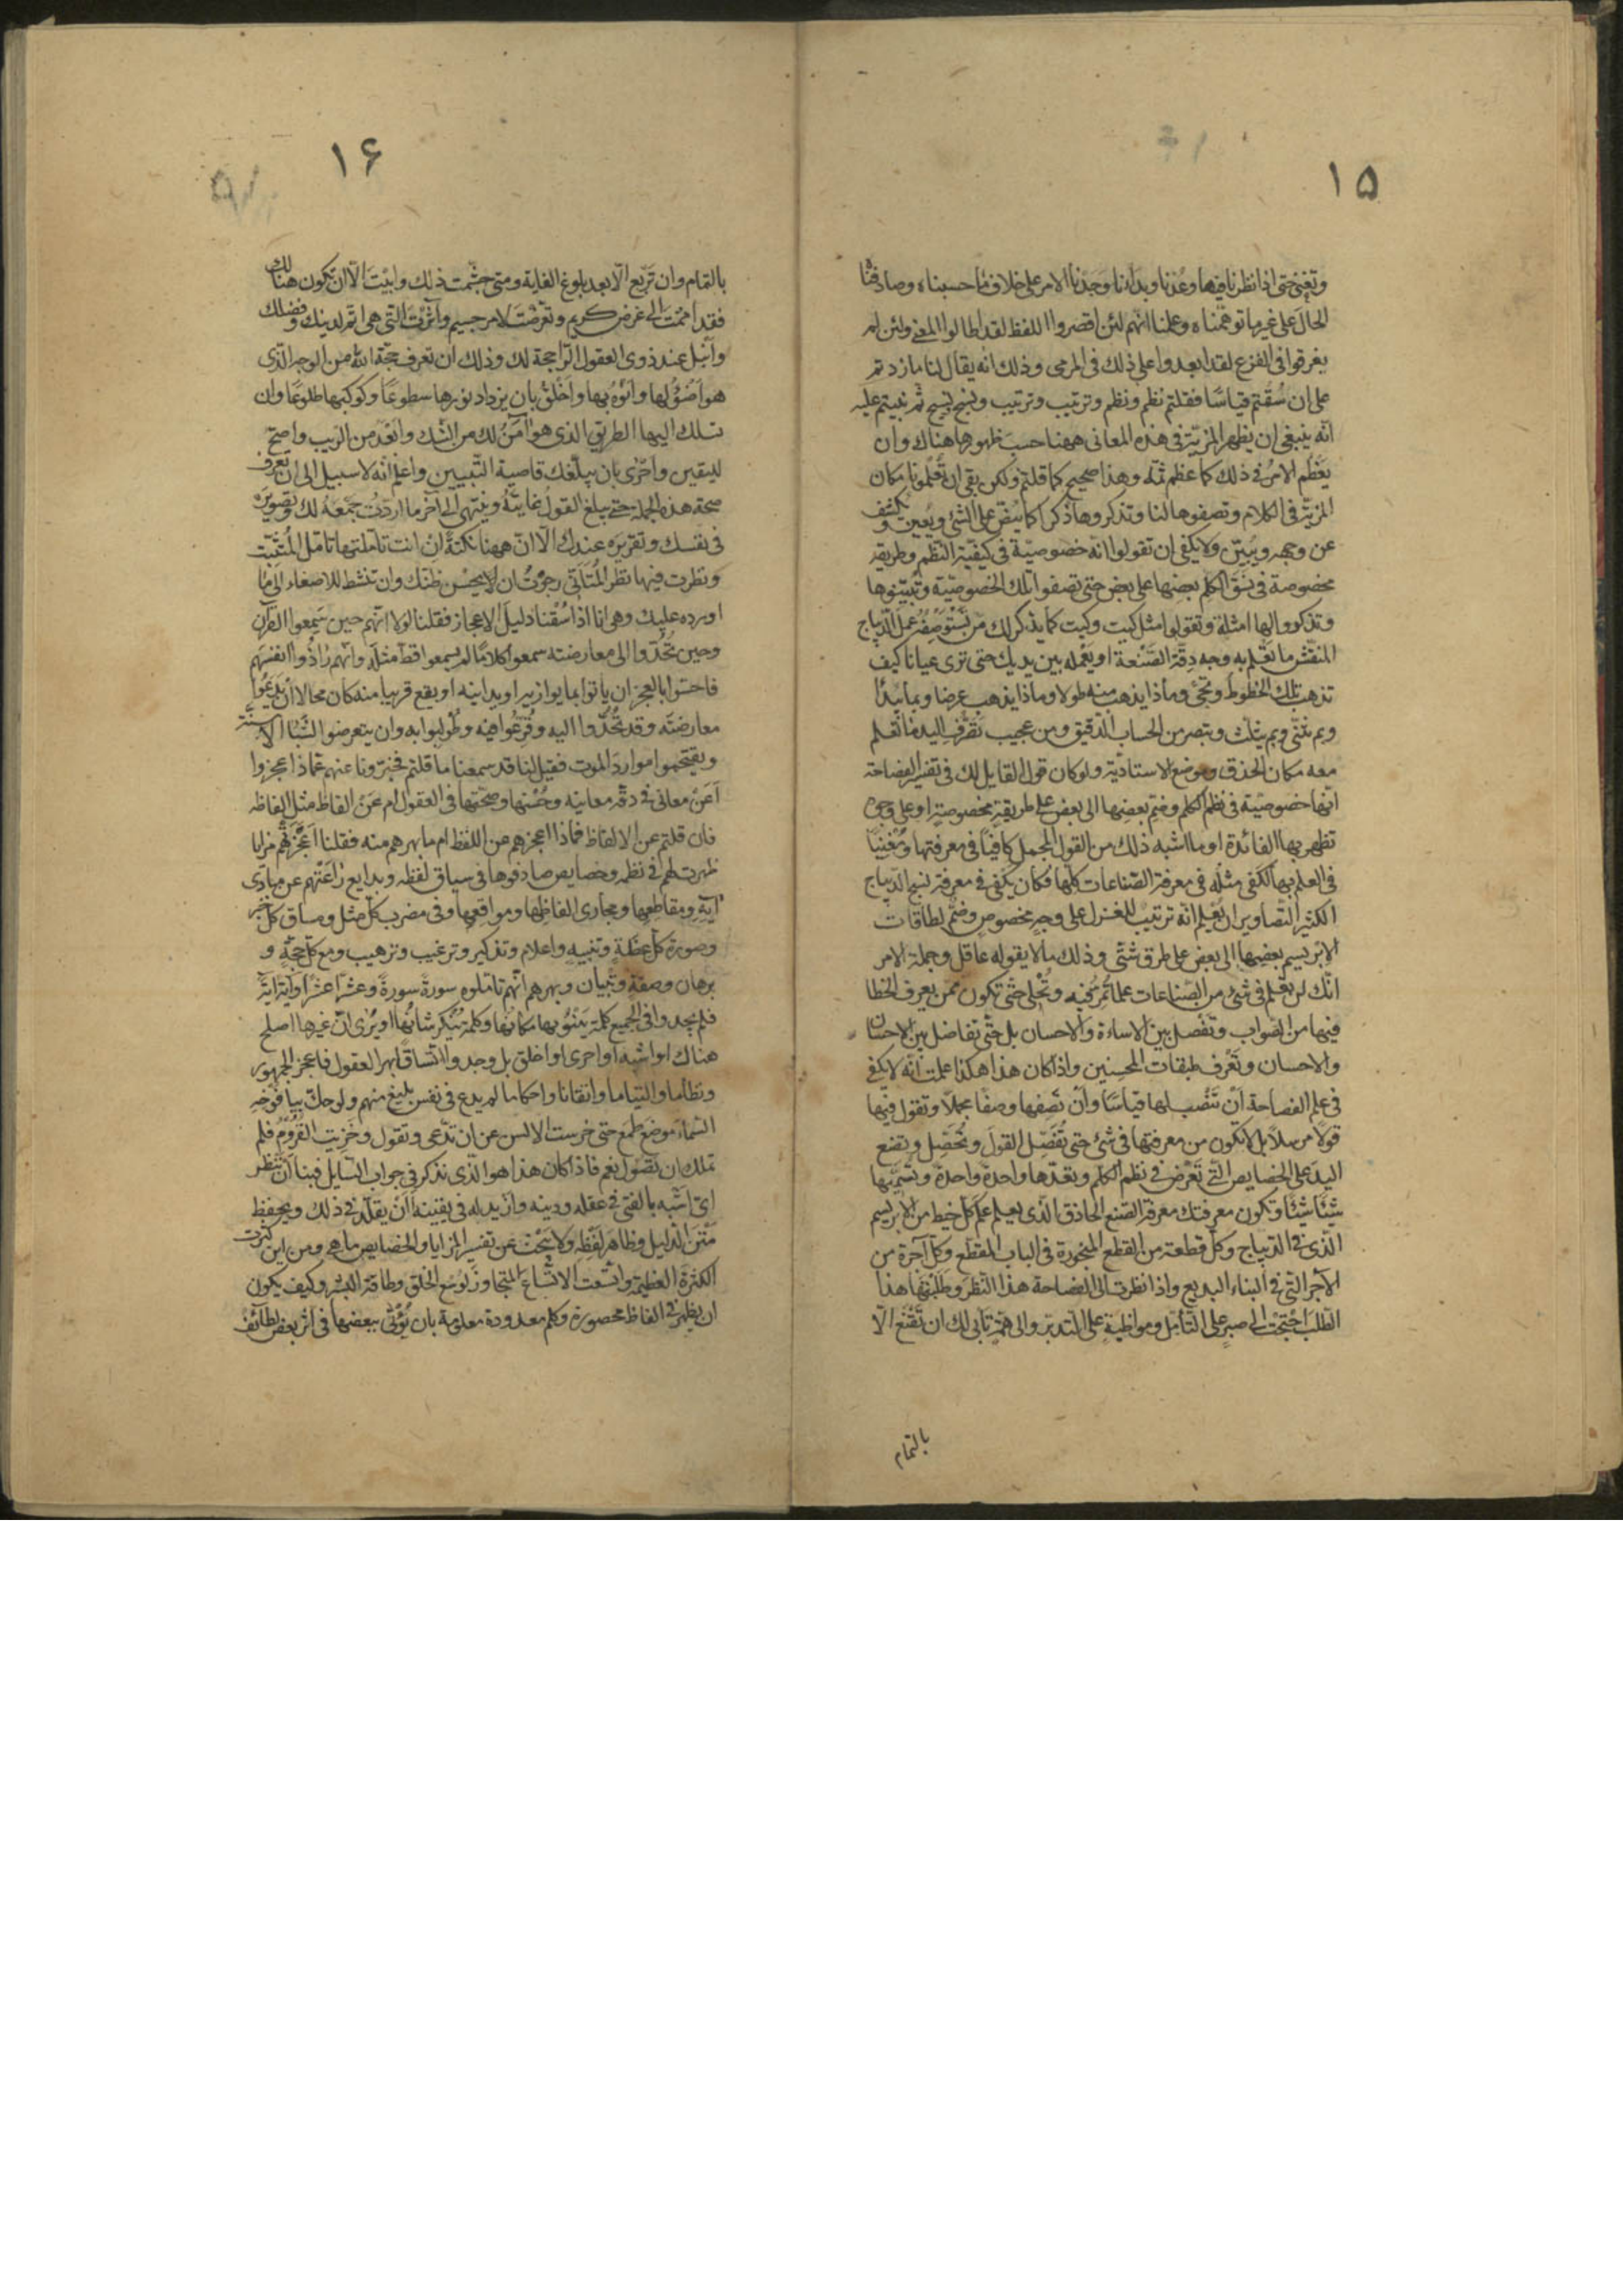 ١٥
وتغني حتى اذا نظرنا فيها وعدنا وبدأنا وجدنا الامر على خلاف ما حسبناه وصادفنا
الحال على غير ما توهمناه وعلمنا انهم لئن اقصروا اللفظ لقد اطالوا المعنى ولئن لم
يغرقوا في النزع لقد ابعدوا على ذلك في المرمى وذلك انه يقال لنا ما زدتم
على ان سقتم قياسا فقلتم نظم ونظم وترتيب وترتيب ونسج ونسج ثم بنيتم عليه
انه ينبغي ان يظهر المزية في هذه المعاني ههنا حسب ظهورها هناك وان
يعظم الامر في ذلك كما عظم ثمه وهذا صحيح كما قلتم ولكن بقي ان تعلمونا مكان
المزية في الكلام وتصفوها لنا وتذكروها ذكرا كما ينص على الشئ ويعين ويكشف
عن وجهه ويبين ولا يكفي ان تقولوا انه خصوصية في كيفية النظم وطريقة
مخصوصة في نسق الكلم بعضها على بعض حتى تصفوا تلك الخصوصية وتبينوها
وتذكروا لها امثلة وتقولوا مثل كيت وكيت كما يذكر لك من تستوصفه عمل الديباج
المنقش ما تعلم به وجه دقة الصنعة او يعمله بين يديك حتى ترى عيانا كيف
تذهب تلك الخطوط وتجئ وماذا يذهب منه طولا وماذا يذهب عرضا وبم يبدأ
وبم يثني وبم يثلث وتبصر من الحساب الدقيق ومن عجيب تصرف اليد ما تعلم
معه مكان الحذق وموضع الاستاذية ولو كان قول القايل لك في تفسير الفصاحة
انها خصوصية في نظم الكلم وضم بعضها الى بعض على طريقة مخصوصة او على وجوه
تظهر بها الفائدة او ما اشبه ذلك من القول المجمل كافيا في معرفتها ومغنيا
في العلم بها لكفى مثله في معرفة الصناعات كلها فكان يكفي في معرفة نسج الديباج
الكثير التصاوير ان يعلم انه ترتيب للغزل على وجه مخصوص وضم لطاقات
الابريسم بعضها الى بعض على طرق شتى وذلك ما لا يقوله عاقل وجملة الامر
انك لن تعلم في شئ من الصناعات علما تمر فيه وتحلى حتى تكون ممن يعرف الخطا
فيها من الصواب وتفصل بين الاساءة والاحسان بل حتى تفاضل بين الاحسان
والاحسان وتعرف طبقات المحسنين واذا كان هذا هكذا علمت انه لا يكفي
في علم الفصاحة ان تنصب لها قياسا وان تصفها وصفا مجملا وتقول فيها
قولا مرسلا بل لا تكون من معرفتها في شئ حتى تفصل القول وتحصل وتضع
اليد على الخصايص التي تعرض في نظم الكلم وتعدها واحدة واحدة وتسميها
شيئا شيئا وتكون معرفتك معرفة الصنع الحاذق الذي يعلم علم كل خيط من الابريسم
الذي في الديباج وكل قطعة من القطع المنجورة في الباب المقطع وكل آجرة من
الآجر التي في البناء البديع واذا نظرت الى الفصاحة هذا النظر وطلبتها هذا
الطلب احتجت الى صبر على التأمل ومواظبة على التدبر والى همة تأبى لك ان تقنع الا
بالتمام
١۶
بالتمام وان تربع الا بعد بلوغ الغاية ومتى جشمت ذلك وابيت الا ان تكون هنالك
فقد اممت الى غرض كريم وتعرضت لامر جسيم وآثرت التي هي اتم لدينك وفضلك
وانبل عند ذوي العقول الراجحة لك وذلك ان تعرف حجة الله من الوجه الذي
هو اضوء لها وانوه بها واخلق بان يزداد نورها سطوعا وكوكبها طلوعا وان
تسلك اليها الطريق الذي هو آمن لك من الشك وابعد من الريب واصح
لليقين واحرى بان يبلغك قاصية التبيين واعلم انه لا سبيل الى ان تعرف
صحة هذه الجملة حتى يبلغ القول غايته وينتهي الى آخر ما اردت جمعه لك وتصويره
في نفسك وتقريره عندك الا ان ههنا نكتة ان انت تأملتها تامل المتثبت
ونظرت فيها نظر المتأني رجوت ان يحسن ظنك وان تنشط للاصغاء الى ما
اورده عليك وهي انا اذا سقنا دليل الاعجاز فقلنا لولا انهم حين سمعوا القرآن
وحين تحدوا الى معارضته سمعوا كلاما لم يسمعوا قط مثله وانهم رازوا انفسهم
فاحسوا بالعجز ان ياتوا بما يوازيه او يدانيه او يقع قريبا منه كان محالا ان يدعوا
معارضته وقد تحدوا اليه وقرعوا فيه وطولبوا به وان يتعرضوا لشبا الاسنة
ويقتحموا موارد الموت فقيل لنا قد سمعنا ما قلتم فخبرونا عنهم عما ذا عجزوا
أعن معاني في دقة معانيه وحسنها وصحتها في العقول ام عن الفاظ مثل الفاظه
فان قلتم عن الالفاظ فماذا اعجزهم من اللفظ ام ما بهرهم منه فقلنا اعجزتهم مزايا
ظهرت لهم في نظمه وخصايص صادفوها في سياق لفظه وبدايع راعتهم عن مبادى
آيه ومقاطعها ومجاري الفاظها ومواقعها وفي مضرب كل مثل ومساق كل خبر
وصورة كل عظة وتنبيه واعلام وتذكير وترغيب وترهيب ومع كل حجة و
برهان وصفة وتبيان وبهرهم انهم تاملوه سورة سورة وعشرا عشرا وآية اية
فلم يجدوا في الجميع كلمة ينبو بها مكانها وكلمة تنكر شانها او يرى ان غيرها اصلح
هناك او اشبه او احرى او اخلق بل وجدوا اتساقا بهر العقول فاعجز الجمهور
ونظاما والتياما واتقانا واحكاما لم يدع في نفس بليغ منهم ولو حك بيافوخه
السماء موضع طمع حتى خرست الالسن عن ان تدعي وتقول وخزيت القروم فلم
تملك ان تصول نعم فاذا كان هذا هو الذي نذكر في جواب السايل فبنا ان ننظر
اي اشبه بالفتى في عقله ودينه وازيد له في يقينه أأن يقلد في ذلك ويحفظ
متن الدليل وظاهر لفظه ولا يبحث عن تفسير المزايا والخصايص ما هي ومن اين كثرت
الكثرة العظيمة واتسعت الاتساع المتجاوز لوسع الخلق وطاقة البشر وكيف يكون
ان يظهر في الفاظ محصورة وكلم معدودة معلومة بان يؤتى ببعضها في اثر بعض لطائف